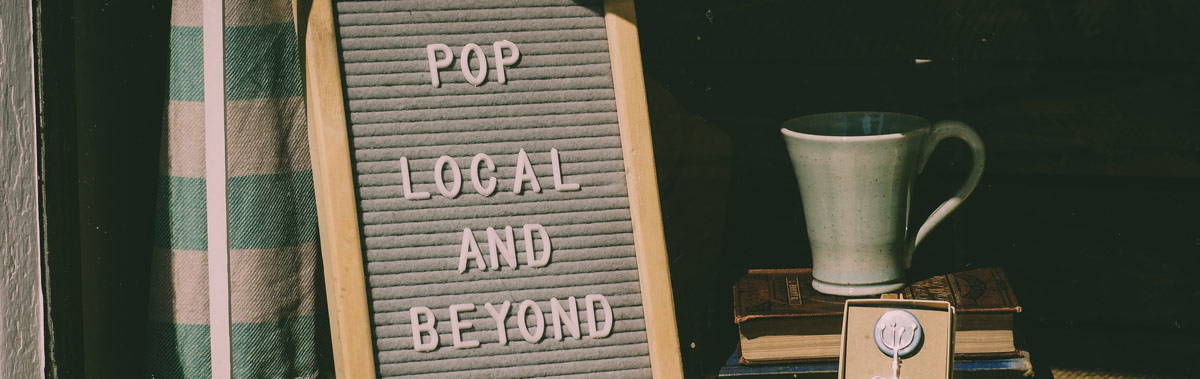 POP
LOCAL
AND
BEYOND